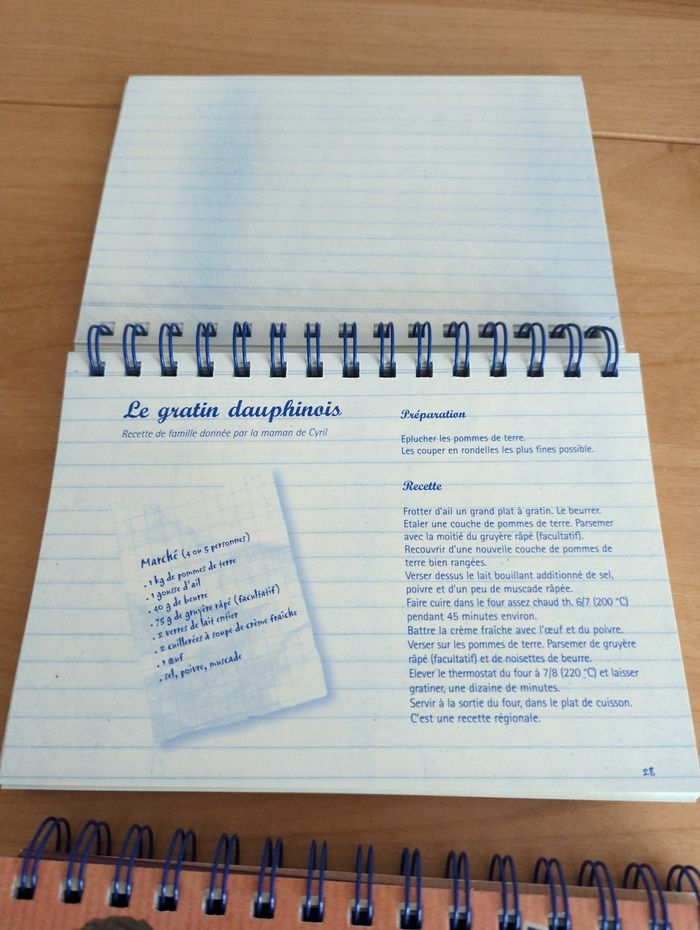 Le gratin dauphinois
Recette de famille donnée par la maman de Cyril
Marché (4 ou 5 personnes)
• 1 kg de pommes de terre
• 1 gousse d'ail
• 40 g de beurre
• 75 g de gruyère râpé (facultatif)
• 2 verres de lait entier
• 2 cuillerées à soupe de crème fraîche
• 1 œuf
• sel, poivre, muscade
Préparation
Eplucher les pommes de terre.
Les couper en rondelles les plus fines possible.
Recette
Frotter d'ail un grand plat à gratin. Le beurrer.
Etaler une couche de pommes de terre. Parsemer
avec la moitié du gruyère râpé (facultatif).
Recouvrir d'une nouvelle couche de pommes de
terre bien rangées.
Verser dessus le lait bouillant additionné de sel,
poivre et d'un peu de muscade râpée.
Faire cuire dans le four assez chaud th. 6/7 (200 °C)
pendant 45 minutes environ.
Battre la crème fraîche avec l'œuf et du poivre.
Verser sur les pommes de terre. Parsemer de gruyère
râpé (facultatif) et de noisettes de beurre.
Elever le thermostat du four à 7/8 (220 °C) et laisser
gratiner, une dizaine de minutes.
Servir à la sortie du four, dans le plat de cuisson.
C'est une recette régionale.
28